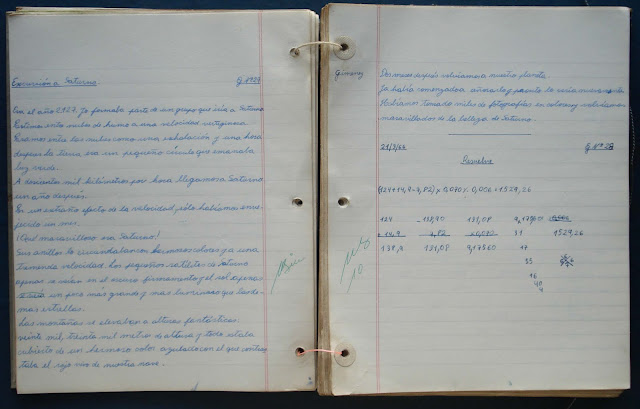 Excursión a Saturno G. Nº 27
Era el año 2127. Yo formaba parte de un grupo que iría a Saturno
Partimos entre nubes de humo a una velocidad vertiginosa
Cruzamos entre las nubes como una exhalación y una hora
después la tierra era un pequeño círculo que emanaba
luz verde.
A doscientos mil kilómetros por hora llegamos a Saturno
un año después.
En un extraño efecto de la velocidad, sólo habíamos enve
jecido un mes.
¡Qué maravilloso era Saturno!
Sus anillos lo circundaban con hermosos colores y a una
tremenda velocidad. Los pequeños satélites de Saturno
apenas se veían en el oscuro firmamento y el sol apenas
un poco más grande y mas luminoso que las de-
mas estrellas.
Las montañas se elevaban a alturas fantásticas
veinte mil, treinta mil metros de altura y todo estaba
cubierto de un hermoso color azulado con el que contras
taba el rojo vivo de nuestra nave.
Bien
Dos meses después volvíamos a nuestro planeta.
Ya había comenzado a
Habíamos tomado miles de fotografías en colores y volvíamos
maravillados de la belleza de Saturno.
21/9/64 G. Nº 28
Resuelve
(124+14,9-7,82) x 0,070 x 0,006 = 1529,26
124 138,90 131,08 9,17560
+ 14,9 7,82 x 0,070 31 1529,26
138,9 131,08 9,17560 17
55
16
40
4
10